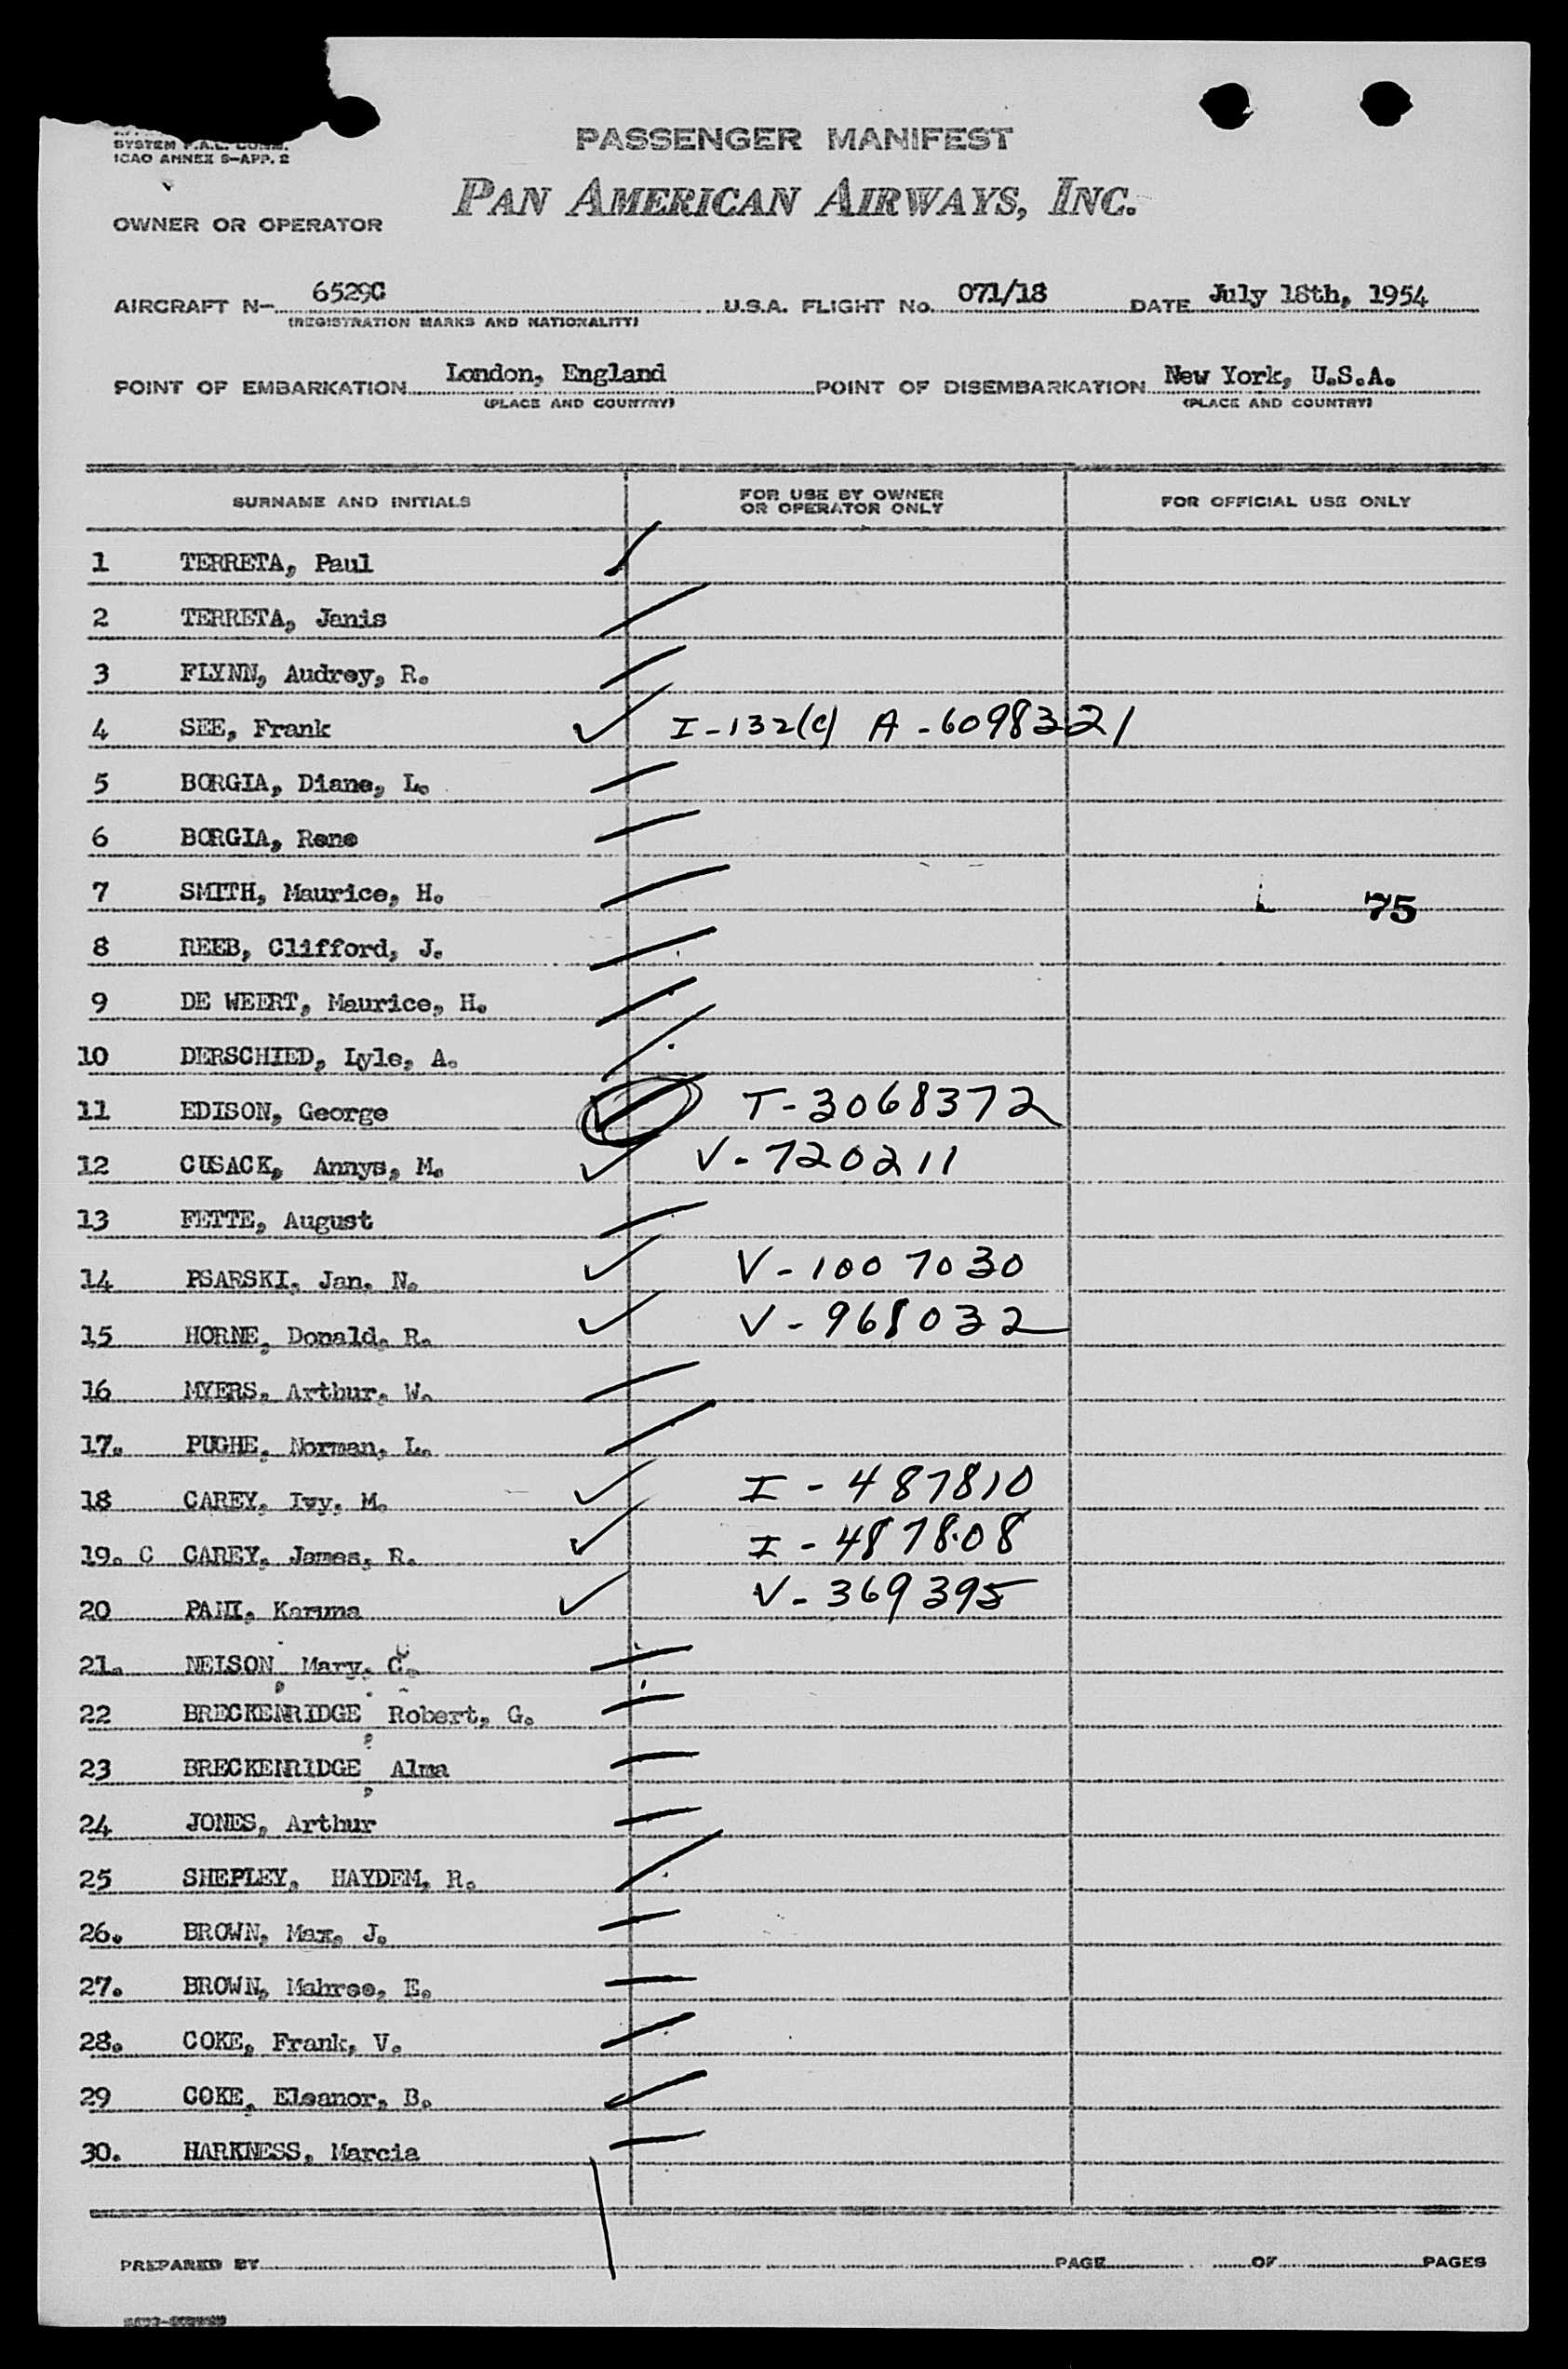 SYSTEM
ICAO ANNEX 9-APP. 2
PASSENGER MANIFEST
PAN AMERICAN AIRWAYS, INC.
OWNER OR OPERATOR
AIRCRAFT N- 6529C U.S.A. FLIGHT No. 071/18 DATE July 18th, 1954
(REGISTRATION MARKS AND NATIONALITY)
POINT OF EMBARKATION London, England POINT OF DISEMBARKATION New York, U.S.A.
(PLACE AND COUNTRY) (PLACE AND COUNTRY)
SURNAME AND INITIALS FOR USE BY OWNER OR OPERATOR ONLY FOR OFFICIAL USE ONLY
1 TERRETA, Paul
2 TERRETA, Janis
3 FLYNN, Audrey, R.
4 SEE, Frank I-132(c) A-6098321
5 BORGIA, Diane, L.
6 BORGIA, Rene
7 SMITH, Maurice, H. 75
8 REEB, Clifford, J.
9 DE WEERT, Maurice, H.
10 DERSCHIED, Lyle, A.
11 EDISON, George T-3068372
12 CUSACK, Annys, M. V-720211
13 FETTE, August
14 PSARSKI, Jan, N. V-1007030
15 HORNE, Donald, R. V-968032
16 MYERS, Arthur, W.
17. PUGHE, Norman, L.
18 CAREY, Ivy, M. I-487810
19. C CAREY, James, R. I-487808
20 PANI, Karuna V-369395
21. NELSON, Mary, C.
22 BRECKENRIDGE, Robert, G.
23 BRECKENRIDGE, Alma
24 JONES, Arthur
25 SHEPLEY, HAYDEM, R.
26. BROWN, Max, J.
27. BROWN, Mahree, E.
28. COKE, Frank, V.
29 COKE, Eleanor, B.
30. HARKNESS, Marcia
PREPARED BY PAGE OF PAGES